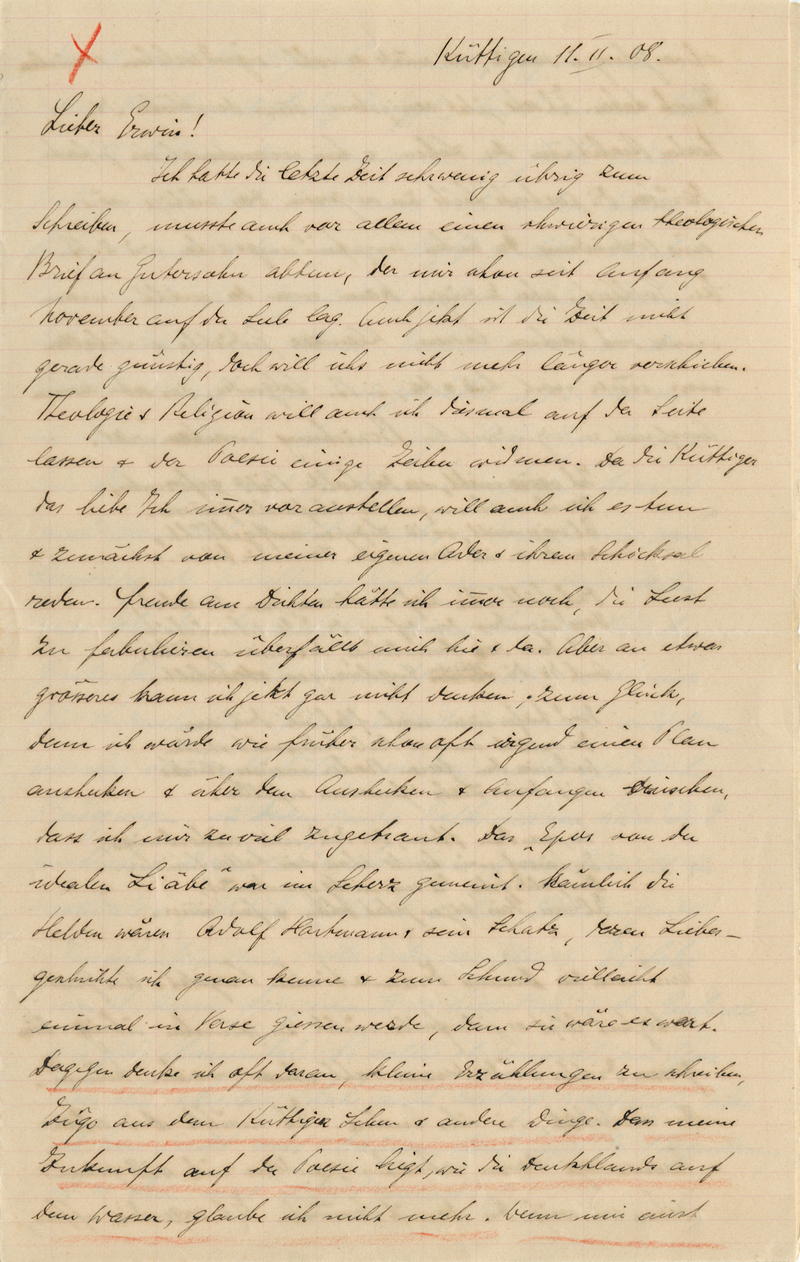 Küttigen 11. II. 08.
Lieber Erwin!
Ich hatte die letzte Zeit sehr wenig übrig zum
Schreiben, musste auch vor allem einen schwierigen theologischen
Brief an Gutersohn abtun, der mir schon seit Anfang
November auf der Seele lag. Auch jetzt ist die Zeit nicht
gerade günstig, doch will ichs nicht mehr länger verschieben.
Theologie & Religion will auch ich diesmal auf der Seite
lassen & der Poesie einige Zeilen widmen. Da die Küttiger
das liebe Ich immer voranstellen, will auch ich es tun
& zunächst von meiner eigenen Ader & ihrem Schicksal
reden. Freude am Dichten hätte ich immer noch, die Lust
zu fabulieren überfällt mich hie & da. Aber an etwas
grösseres kann ich jetzt gar nicht denken, zum Glück,
denn ich würde wie früher schon oft irgend einen Plan
aushecken & über dem Aushecken & Anfangen einsehen,
dass ich mir zu viel zugetraut. Das „Epos von der
idealen Liäbe" war im Scherz gemeint. Nämlich die
Helden wären Adolf Hartmann & sein Schatz, deren Liebes-
geschichte ich genau kenne & zum Schund vielleicht
einmal in Verse giessen werde, denn sie wäre es wert.
Dagegen denke ich oft daran, kleine Erzählungen zu schreiben,
Züge aus dem Küttiger Leben & andere Dinge. Dass meine
Zukunft auf der Poesie liegt, wie die Deutschlands auf
dem Wasser, glaube ich nicht mehr. Wenn mir einst